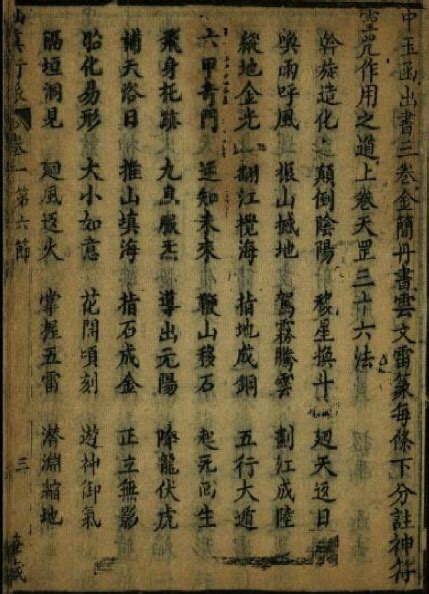 中玉函出書三卷金簡丹書雲文雷篆每條下分註神符
咒作用之道上卷天罡三十六法
斡旋造化 顛倒陰陽 移星換斗 廻天返日
喚雨呼風 振山撼地 駕霧騰雲 劃江成陸
縱地金光 翻江攪海 指地成鋼 五行大遁
六甲奇門 逆知未來 鞭山移石 起死回生
飛身托跡 九息服炁 導出元陽 降龍伏虎
補天浴日 推山填海 指石成金 正立無影
胎化易形 大小如意 花開頃刻 遊神御氣
隔垣洞見 廻風返火 掌握五雷 潛淵縮地
真衍派 卷一第六節 三